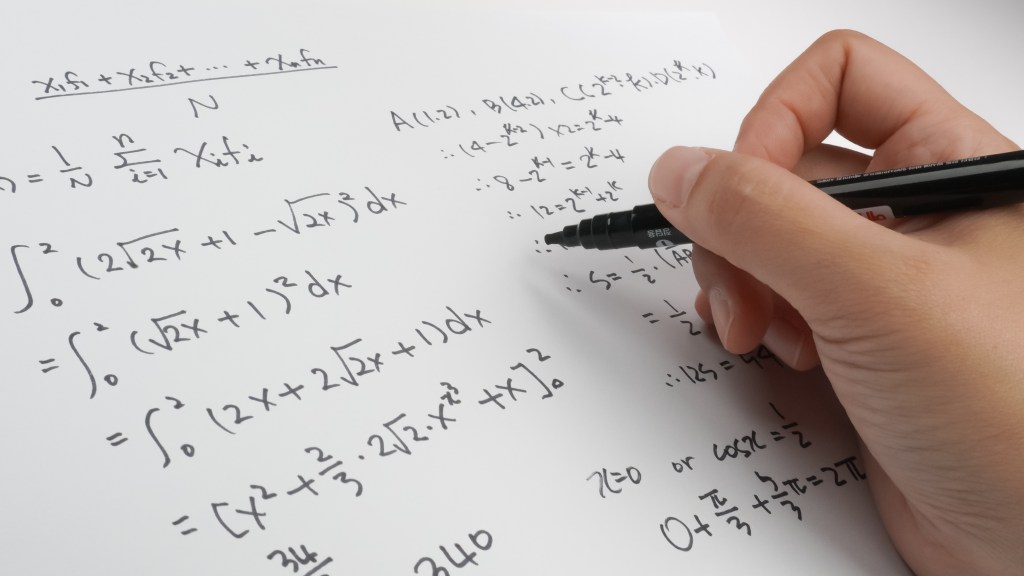 x₁f₁ + x₂f₂ + ⋯ + xₙfₙ
N
= 1/N ∑ᵢ₌₁ⁿ xᵢfᵢ
∫₀² (2√2x + 1 − √2x)² dx
= ∫₀² (√2x + 1)² dx
= ∫₀² (2x + 2√2x + 1) dx
= [x² + 2/3 · 2√2 · x
+ x]₀²
34
340
A(1,2), B(4,2), C(2
∴ (4−2ᵏ⁺²) ×2=2ᵏ−4
∴ 8−2ᵏ⁺¹ = 2ᵏ−4
∴ 12=2ᵏ⁺¹+2ᵏ
∴
∴ S= 1/2 · (
= 1/2
∴ 12S =
x=0 or cosx = 1/2
0 + π/3 + 5/3π = 2π